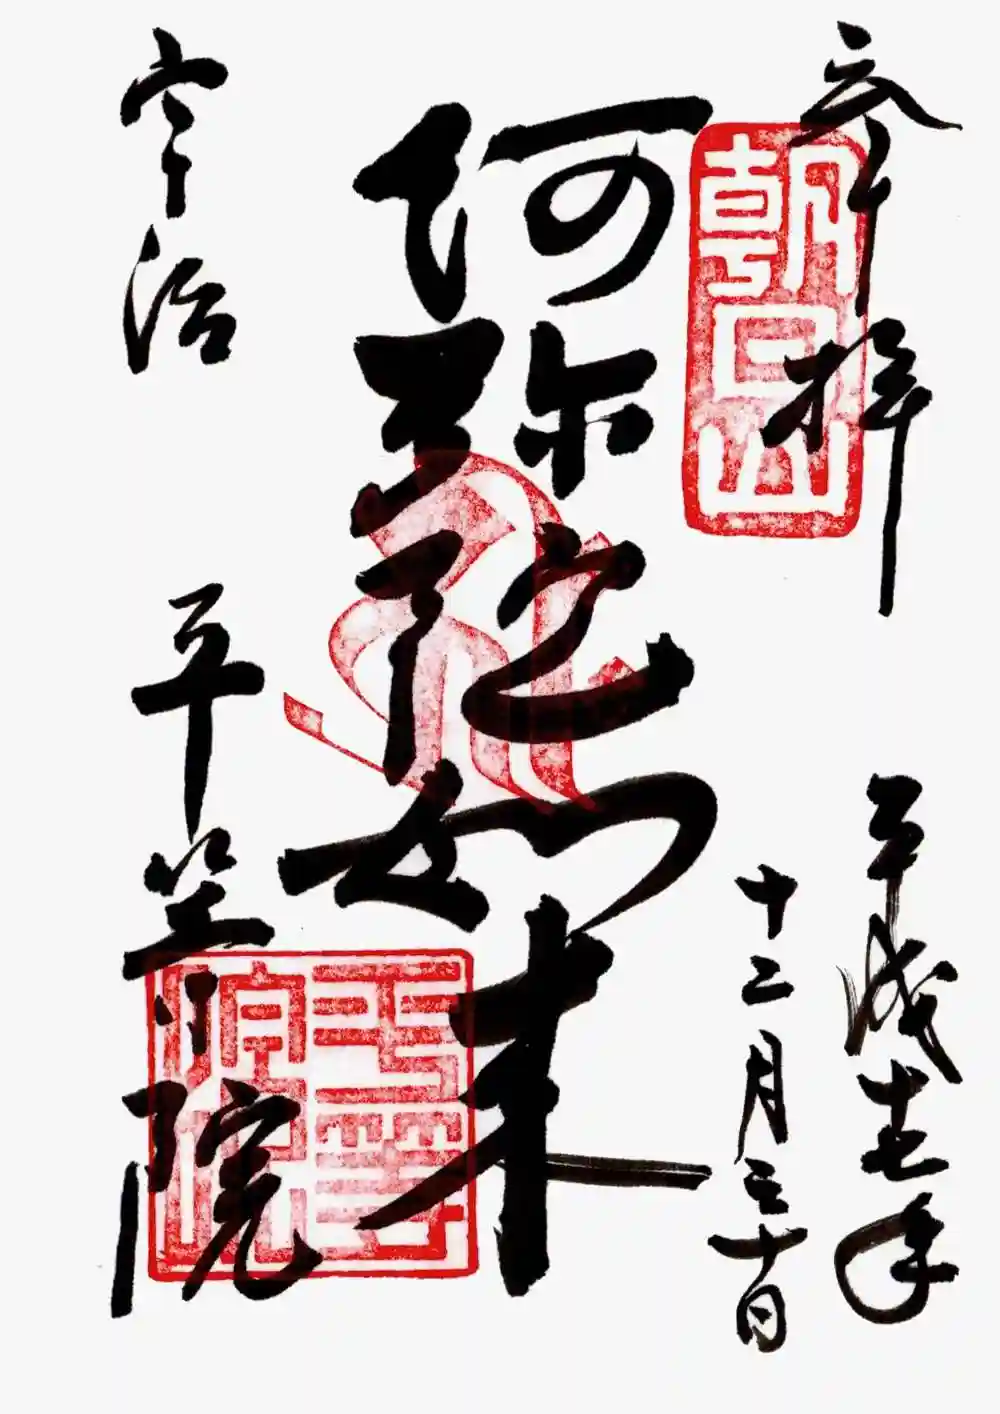 奉拝
朝日山
平成
年
十二月三十日
阿弥陀如来
宇治
平等院
平等院